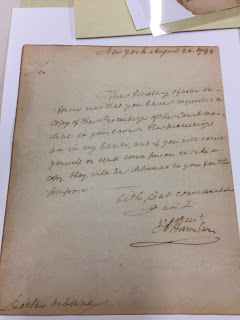 New York August 24. 1799
Sir
The Secretary of war in-
forms me that you have requested a
copy of the Proceedings of the Court mar-
tial in your case. The proceedings
are in my hands, and if you will come
yourself or send some person to take a
copy they will be delivered to you for the
purpose
With great consideration
I am Sir
Hamilton
Doctor Osborne